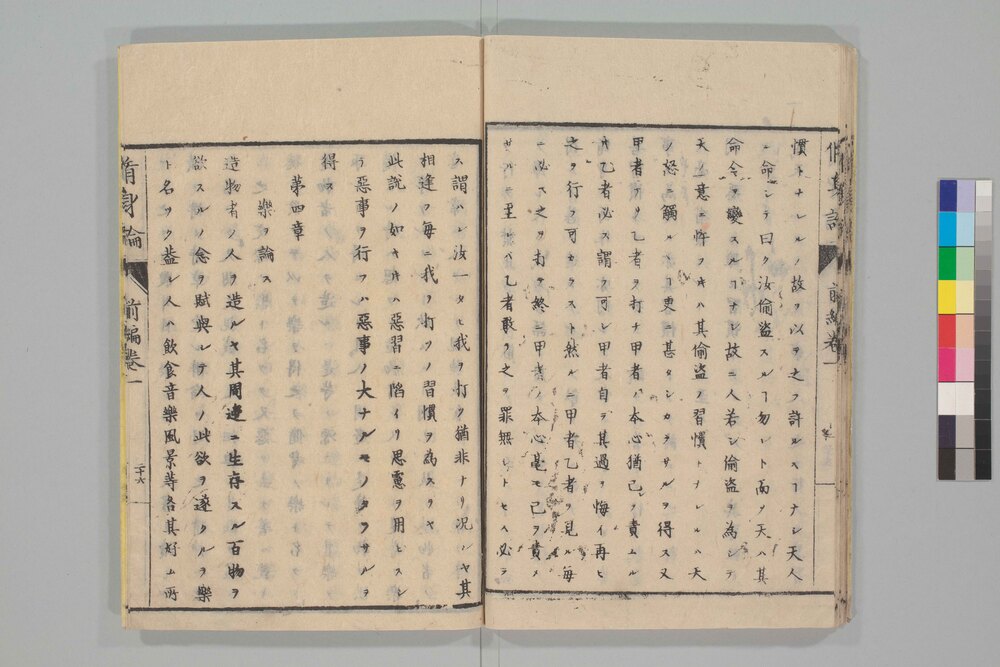 慣トナレルノ故ヲ以テ之ヲ許ルスヿナシ天人
ニ命シテ曰ク汝偷盜スルヿ勿レト而ヲ天ハ其
命令ヲ變スルヿナシ故ニ人若シ偷盜ヲ為シテ
天ノ意ニ忤ヲキハ其偷盜ノ習慣トナレルハ天
ノ怒ニ觸ルヽヿ更ニ甚タシカラサルヲ得ス又
甲者アリ乙者ヲ打ナ甲者ハ本心猶己ヲ責ムル
キ乙者必ス謂ラク可シ甲者自ラ其過ヲ悔イ再ヒ
之ヲ行フ可カラスト然ルニ甲者乙者ヲ見ル毎
ニ必ス之ヲ打ヲ終ニ甲者ノ本心毫モ己ヲ責メ
サルニ至レハ乙者敢ヲ之ヲ罪無シトセヘ必ラ
修身論 前編卷一
ス謂ハン汝一タヒ我ヲ打ツ猶非ナリ况ンヤ其
相逢フ毎ニ我ヲ打ツノ習慣ヲ為スヲヤ
此說ノ如キハ惡習ニ陷イリ思慮ヲ用ヒスシ
テ惡事ヲ行フハ惡事ノ大ナルモノタラサルヲ
得ス
第四章
樂ヲ論ス
造物者ノ人ヲ造ルヤ其周邊ニ生存スル百物ヲ
欲スルノ念ヲ賦與シテ人ノ此欲ヲ遂クルヲ樂
ト名ツク葢シ人ハ飲食音樂風景等各其好ム所
脩身論 前編卷一 二十六